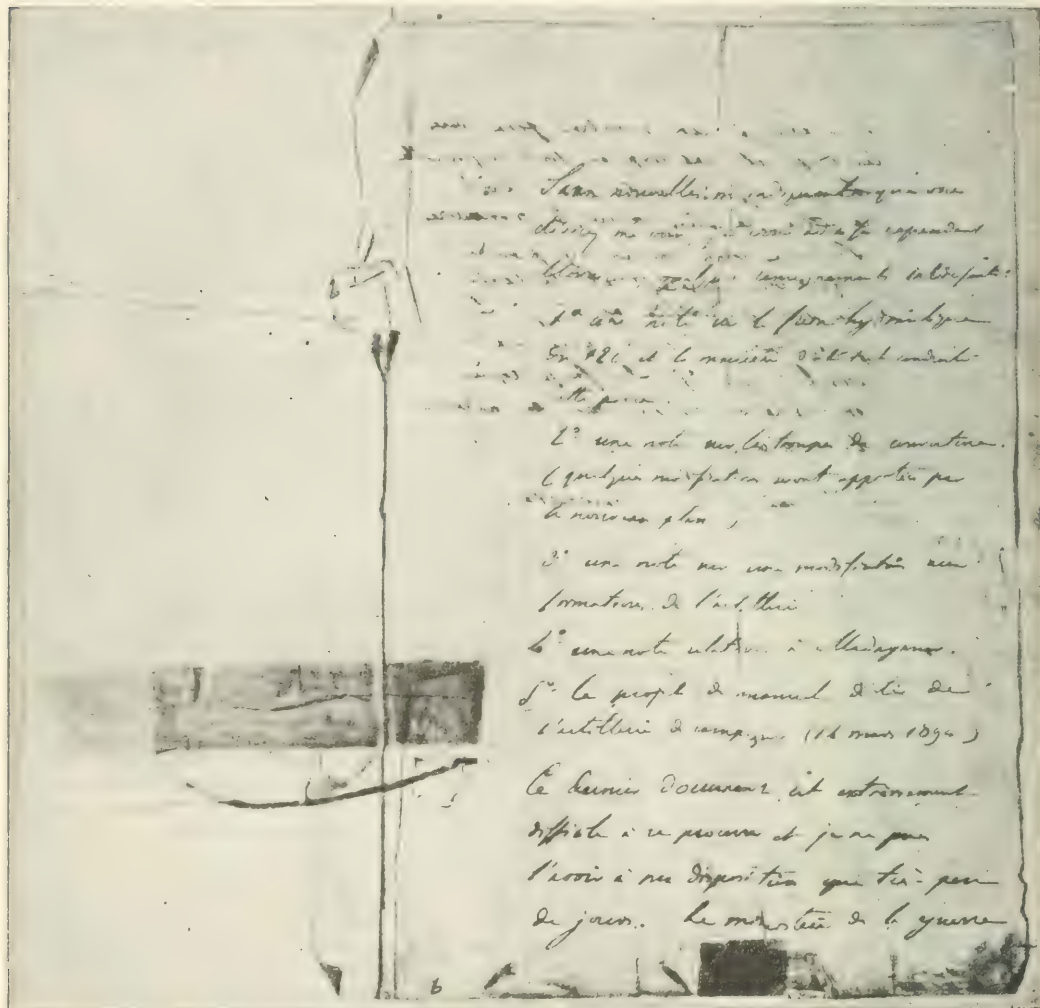 Sans nouvelles m'indiquant que vous
désirez me voir je vous adresse cependant
Monsieur quelques renseignements intéressants :
1° une note sur le frein hydraulique
du 120 et la manière dont s'est conduite
cette pièce.
2° une note sur les troupes de couverture.
(quelques modifications seront apportées par
le nouveau plan)
3° une note sur une modification aux
formations de l'artillerie
4° une note relative à Madagascar.
5° le projet de manuel de tir de
l'artillerie de campagne (14 mars 1894)
Ce dernier document est extrêmement
difficile à se procurer et je ne puis
l'avoir à ma disposition que très peu
de jours. Le ministère de la guerre